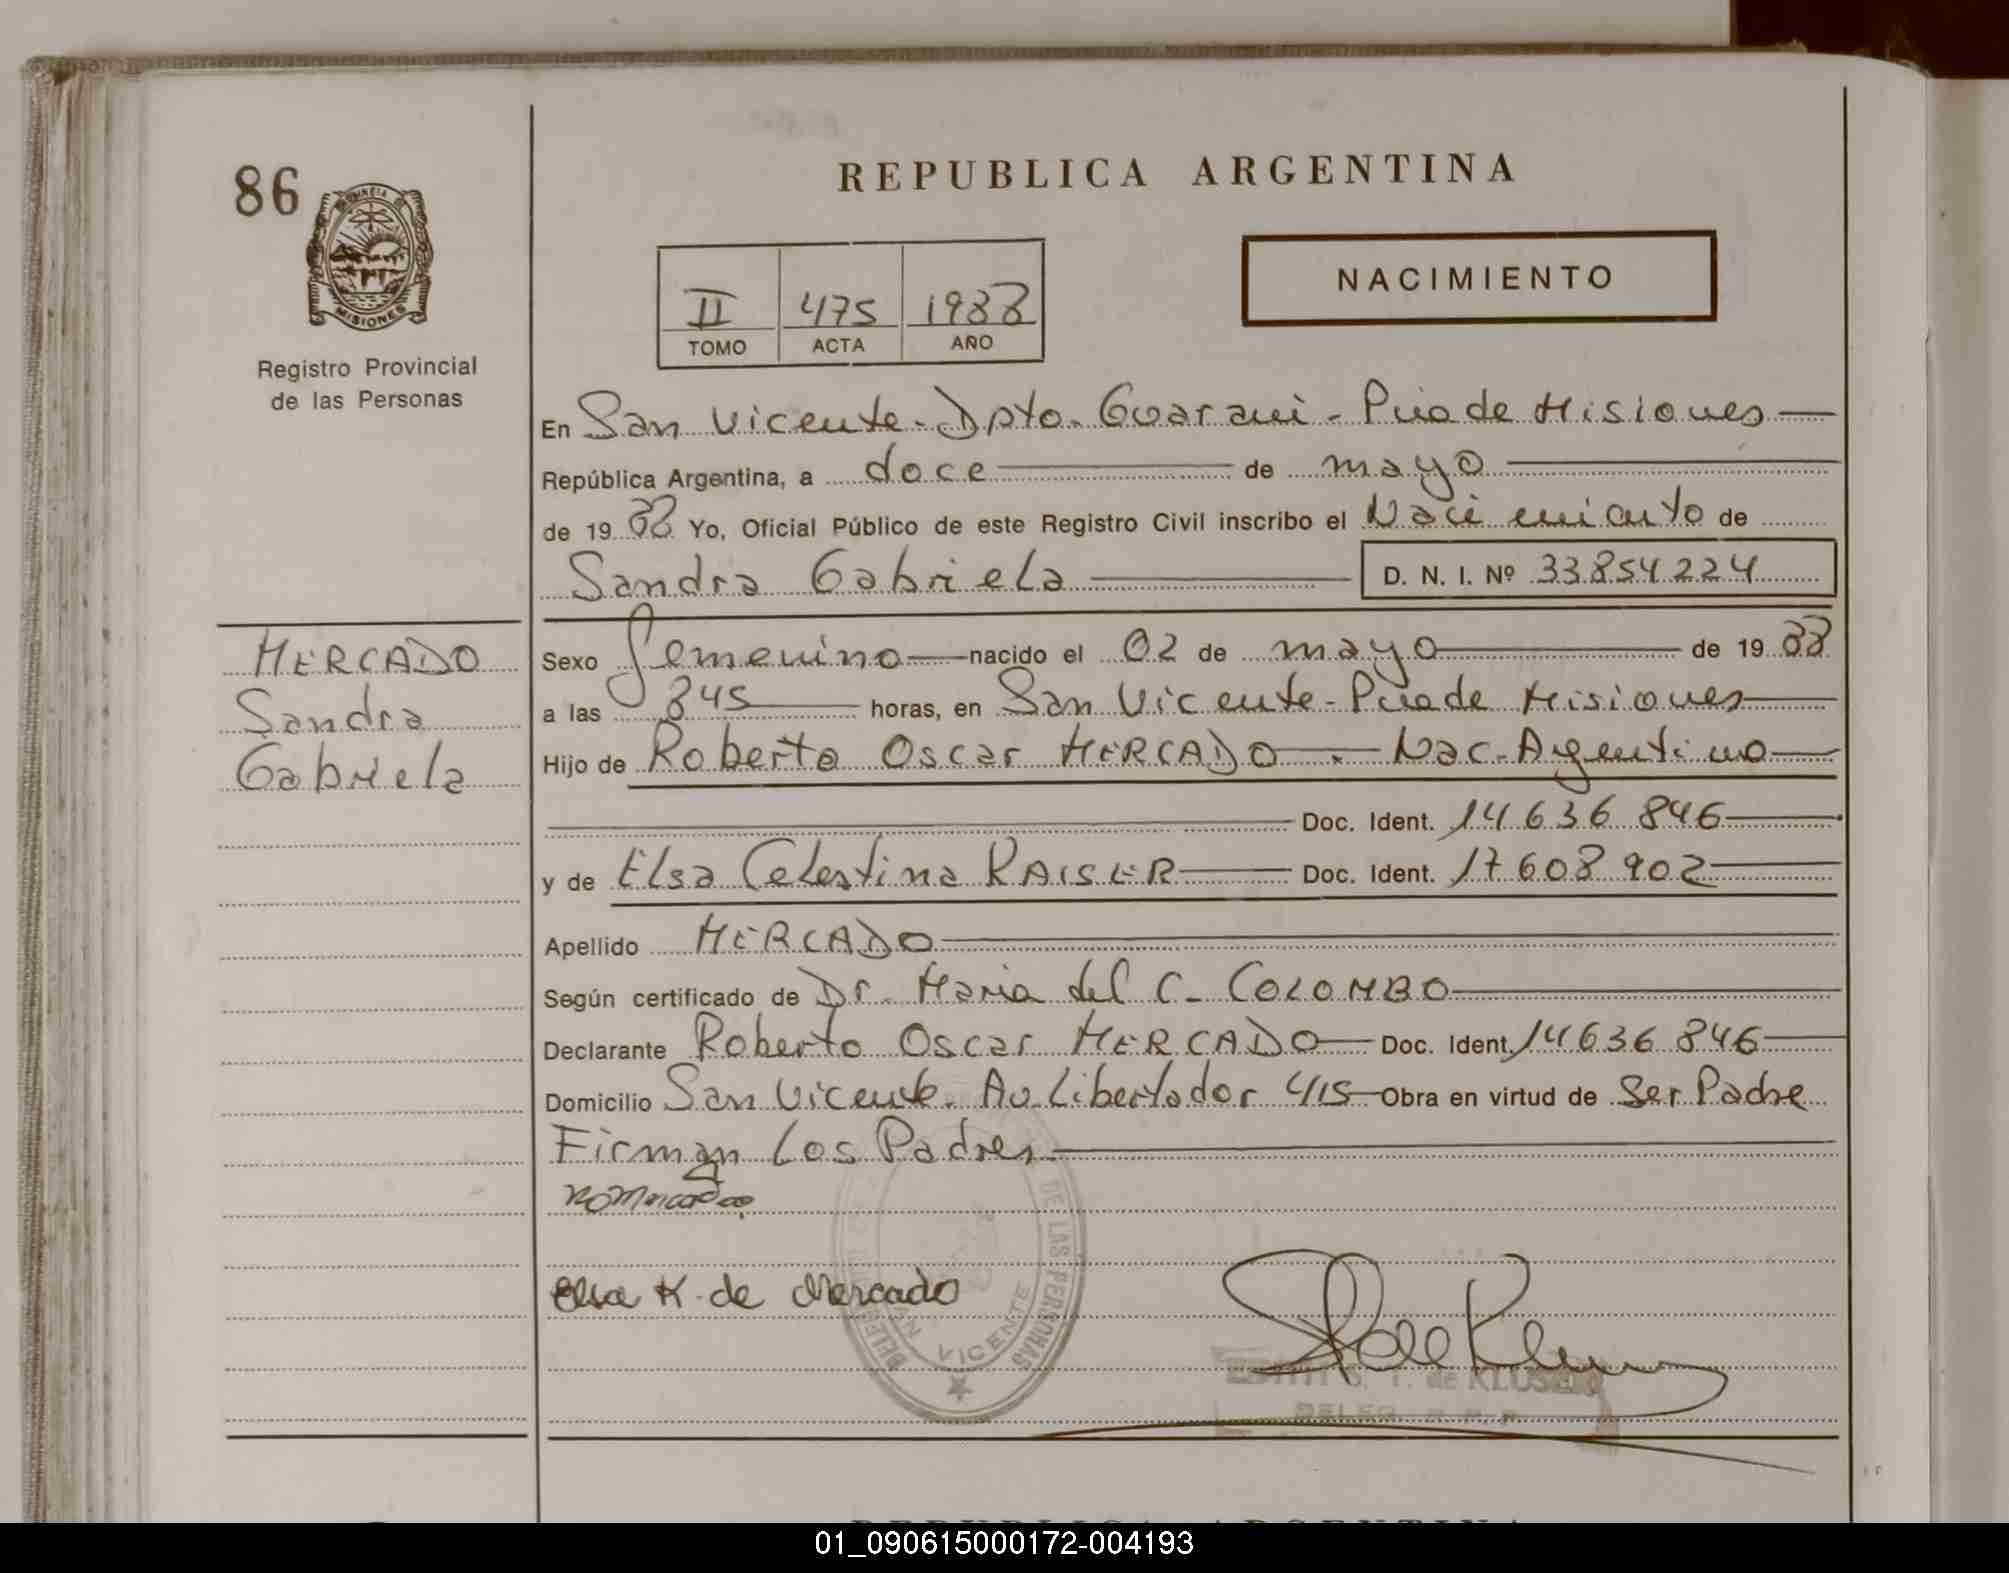 86
PROVINCIA D
MISIONES
Registro Provincial
de las Personas
REPUBLICA ARGENTINA
NACIMIENTO
II 475 1988
TOMO ACTA AÑO
En San Vicente - Dpto. Guarani - Pcia de Misiones
República Argentina, a doce de mayo
de 19 88 Yo, Oficial Público de este Registro Civil inscribo el Nacimiento de
Sandra Gabriela D. N. I. Nº 33854224
MERCADO
Sandra
Gabriela
Sexo Femenino nacido el 02 de mayo de 19 88
a las 845 horas, en San Vicente - Pcia de Misiones
Hijo de Roberto Oscar MERCADO - Nac. Argentino
Doc. Ident. 14 636 846
y de Elsa Celestina KAISER Doc. Ident. 17 608 902
Apellido MERCADO
Según certificado de Dr. Maria del C. COLOMBO
Declarante Roberto Oscar MERCADO Doc. Ident. 14 636 846
Domicilio San Vicente. Av. Libertador 415 Obra en virtud de Ser Padre
Firman Los Padres
Elsa K. de Mercado
DE LAS PERSONAS
SAN VICENTE
de KLUSEN
DELEG. R. P. P.
REPUBLICA ARGENTINA
01_090615000172-004193